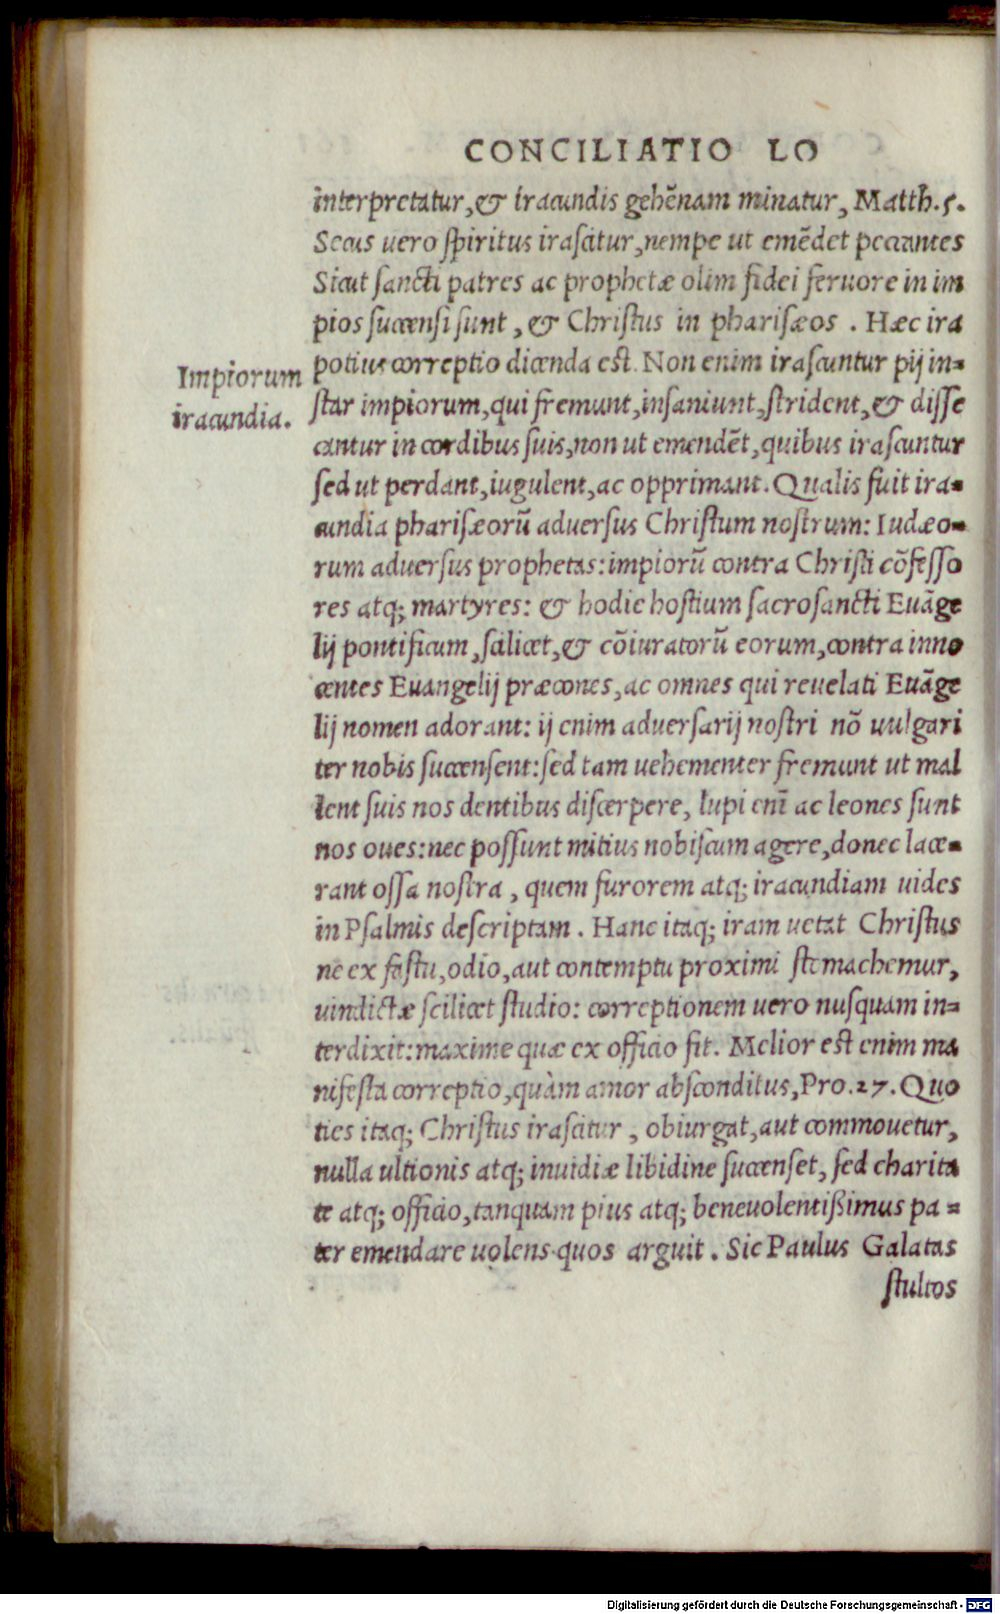 CONCILIATIO LO
interpretatur, & iracundis gehēnam minatur, Matth.5.
Secus uero spiritus irascitur, nempe ut emēdet peccantes
Sicut sancti patres ac prophetæ olim fidei feruore in im
pios succensi sunt, & Christus in pharisæos. Hæc ira
potius correptio dicenda est. Non enim irascuntur pij in-
Impiorum
iracundia.
star impiorum, qui fremunt, insaniunt, strident, & disse
cantur in cordibus suis, non ut emendēt, quibus irascuntur
sed ut perdant, iugulent, ac opprimant. Qualis fuit ira-
cundia pharisæorū aduersus Christum nostrum: Iudæo-
rum aduersus prophetas: impiorū contra Christi cōfesso
res atq; martyres: & hodie hostium sacrosancti Euāge
lij pontificum, scilicet, & cōiuratorū eorum, contra inno
centes Euangelij præcones, ac omnes qui reuelati Euāge
lij nomen adorant: ij enim aduersarij nostri nō uulgari
ter nobis succensent: sed tam uehementer fremunt ut mal
lent suis nos dentibus discerpere, lupi enī ac leones sunt
nos oues: nec possunt mitius nobiscum agere, donec lace-
rant ossa nostra, quem furorem atq; iracundiam uides
in Psalmis descriptam. Hanc itaq; iram uetat Christus
ne ex fastu, odio, aut contemptu proximi stomachemur,
uindictæ scilicet studio: correptionem uero nusquam in-
terdixit: maxime quæ ex officio fit. Melior est enim ma
nifesta correptio, quàm amor absconditus, Pro.27. Quo
ties itaq; Christus irascitur, obiurgat, aut commouetur,
nulla ultionis atq; inuidiæ libidine succenset, sed charita
te atq; officio, tanquam pius atq; beneuolentißimus pa-
ter emendare uolens quos arguit. Sic Paulus Galatas
stultos
Digitalisierung gefördert durch die Deutsche Forschungsgemeinschaft - DFG